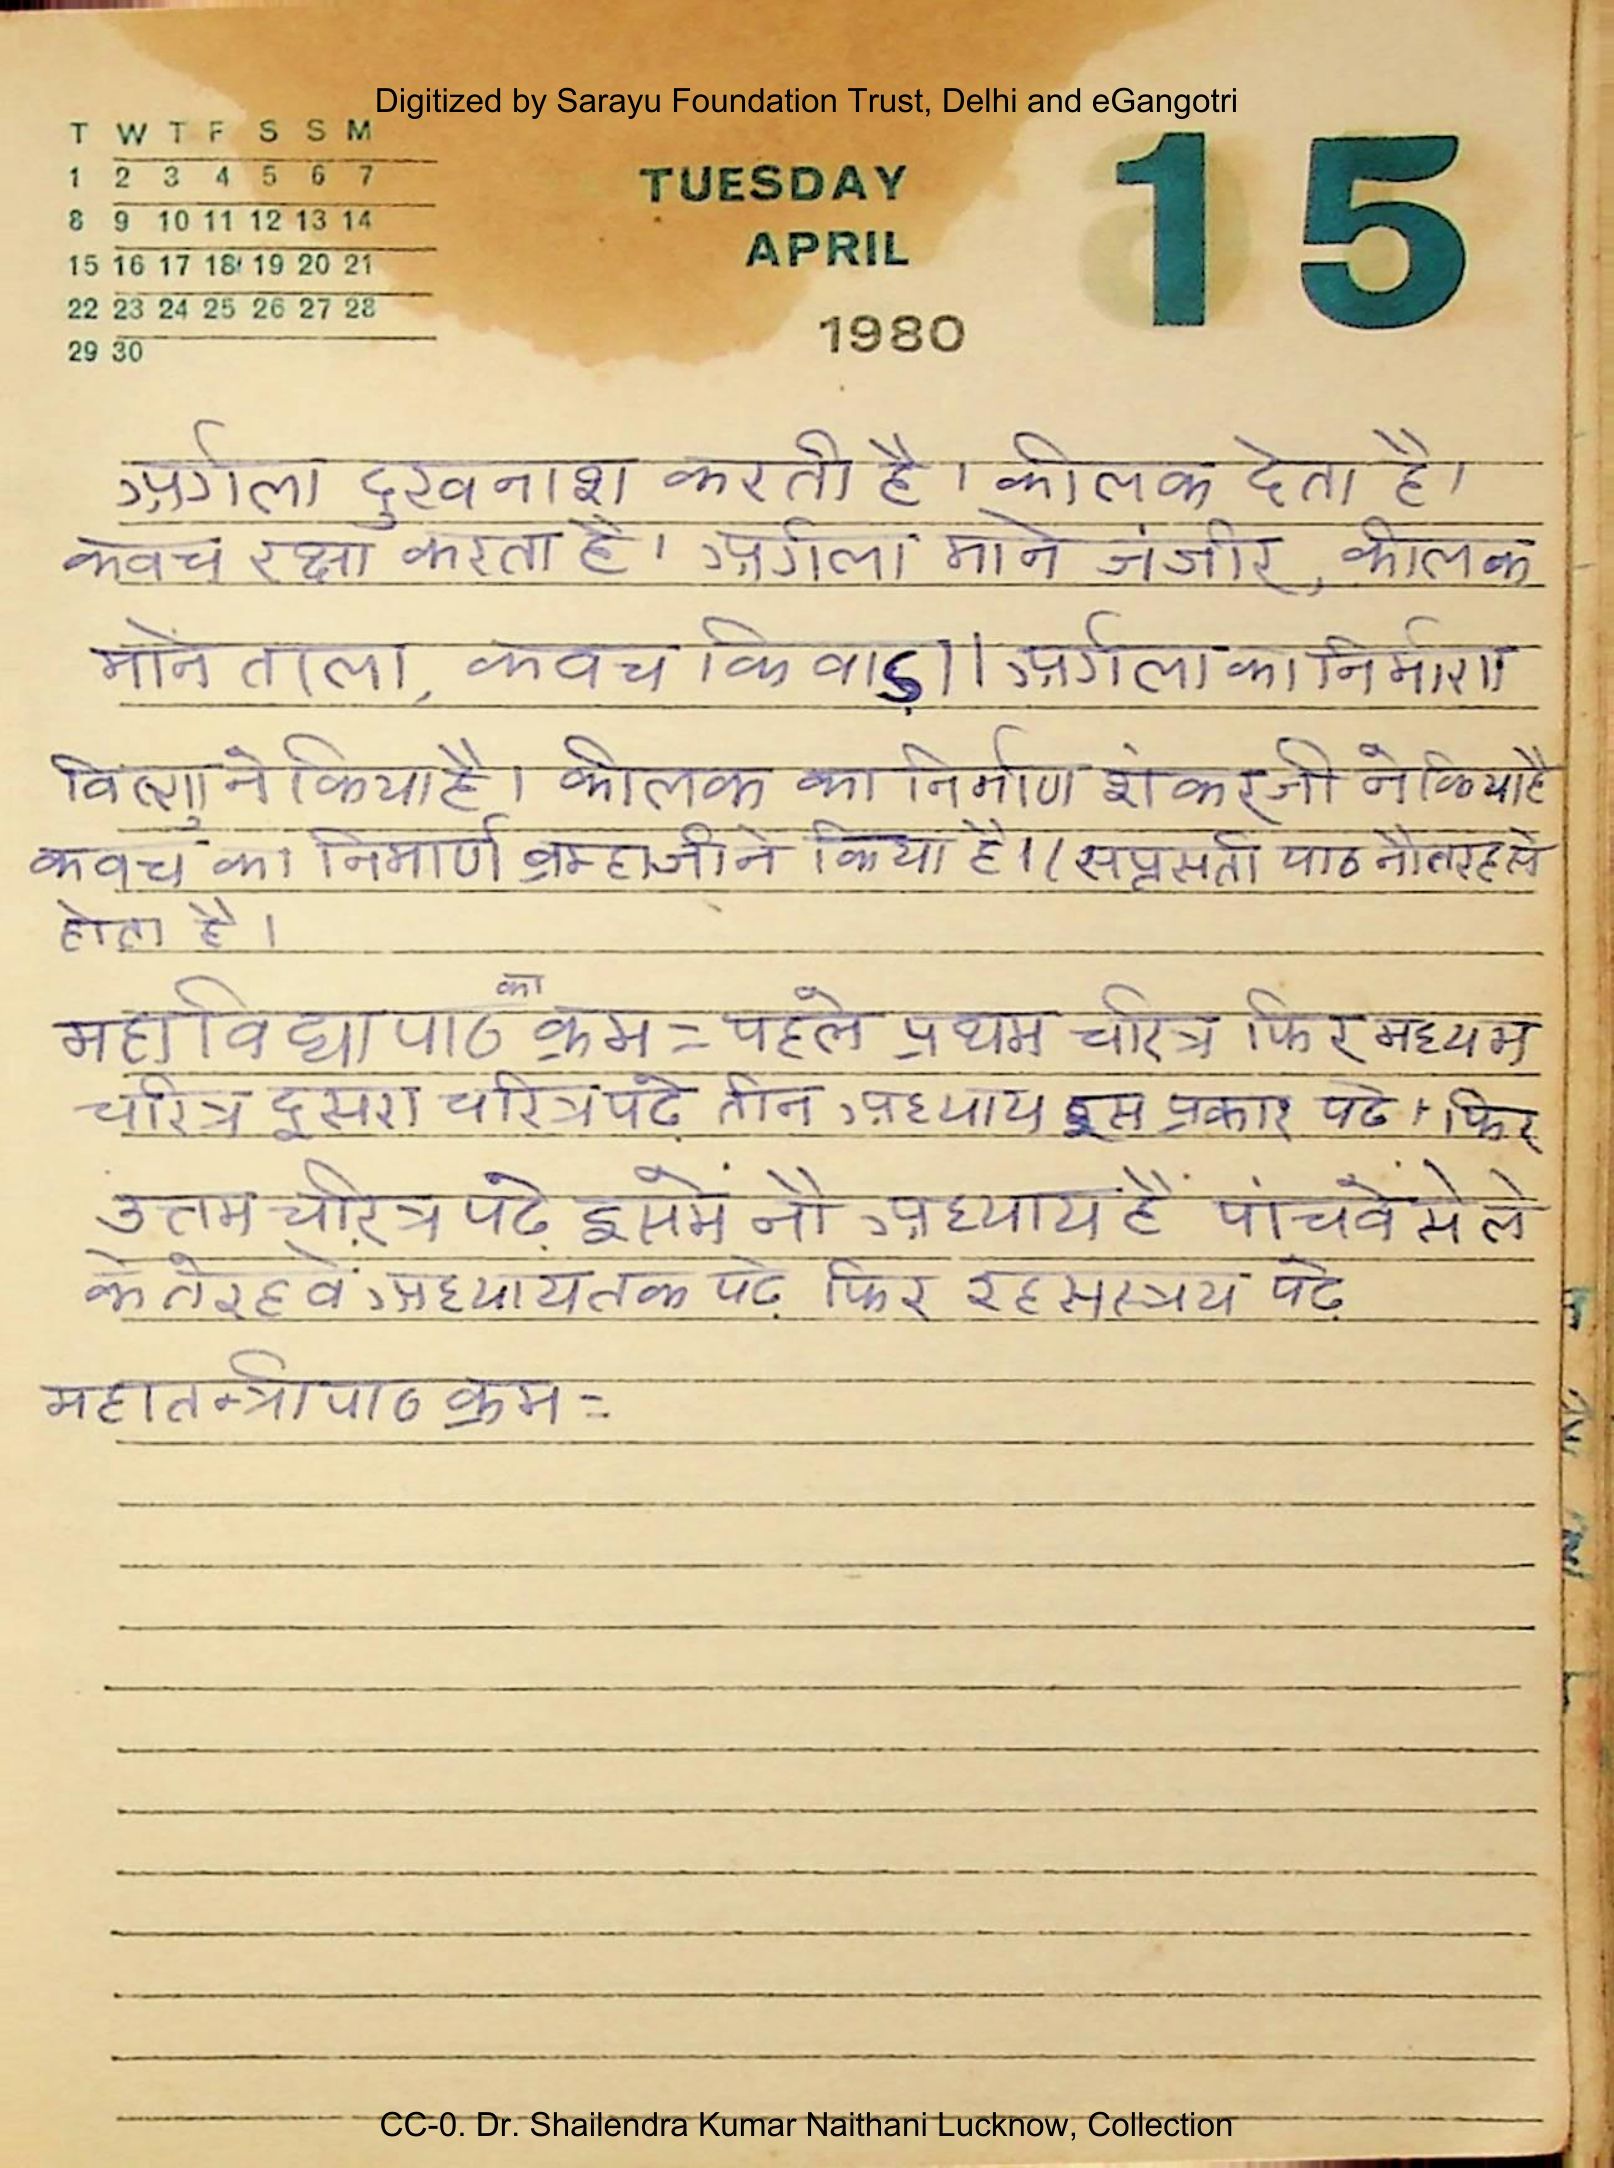 Digitized by Sarayu Foundation Trust, Delhi and eGangotri
T W T F S S M
1 2 3 4 5 6 7
8 9 10 11 12 13 14
15 16 17 18 19 20 21
22 23 24 25 26 27 28
29 30
TUESDAY
APRIL
1980
15
अर्गला दुखनाश करती है। कीलक देता है।
कवच रक्षा करता है। अर्गला माने जंजीर, कीलक
माने ताला, कवच किवाड़।। अर्गला का निर्माण
विष्णु ने किया है। कीलक का निर्माण शंकरजी ने किया है
कवच का निमार्ण ब्रम्हाजीने किया है।(सप्तसती पाठ नौ तरह से
होता है।
महाविद्या पाठ का क्रम = पहले प्रथम चरित्र फिर मध्यम
चरित्र दूसरा चरित्र पढ़े तीन अध्याय इस प्रकार पढे। फिर
उत्तम चरित्र पढ़े इसमें नौ अध्याय हैं पांचवें से ले
के तेरहवें अध्याय तक पढ़े फिर रहसस्त्रय पढ़े
महातन्त्री पाठ क्रम =
CC-0. Dr. Shailendra Kumar Naithani Lucknow, Collection